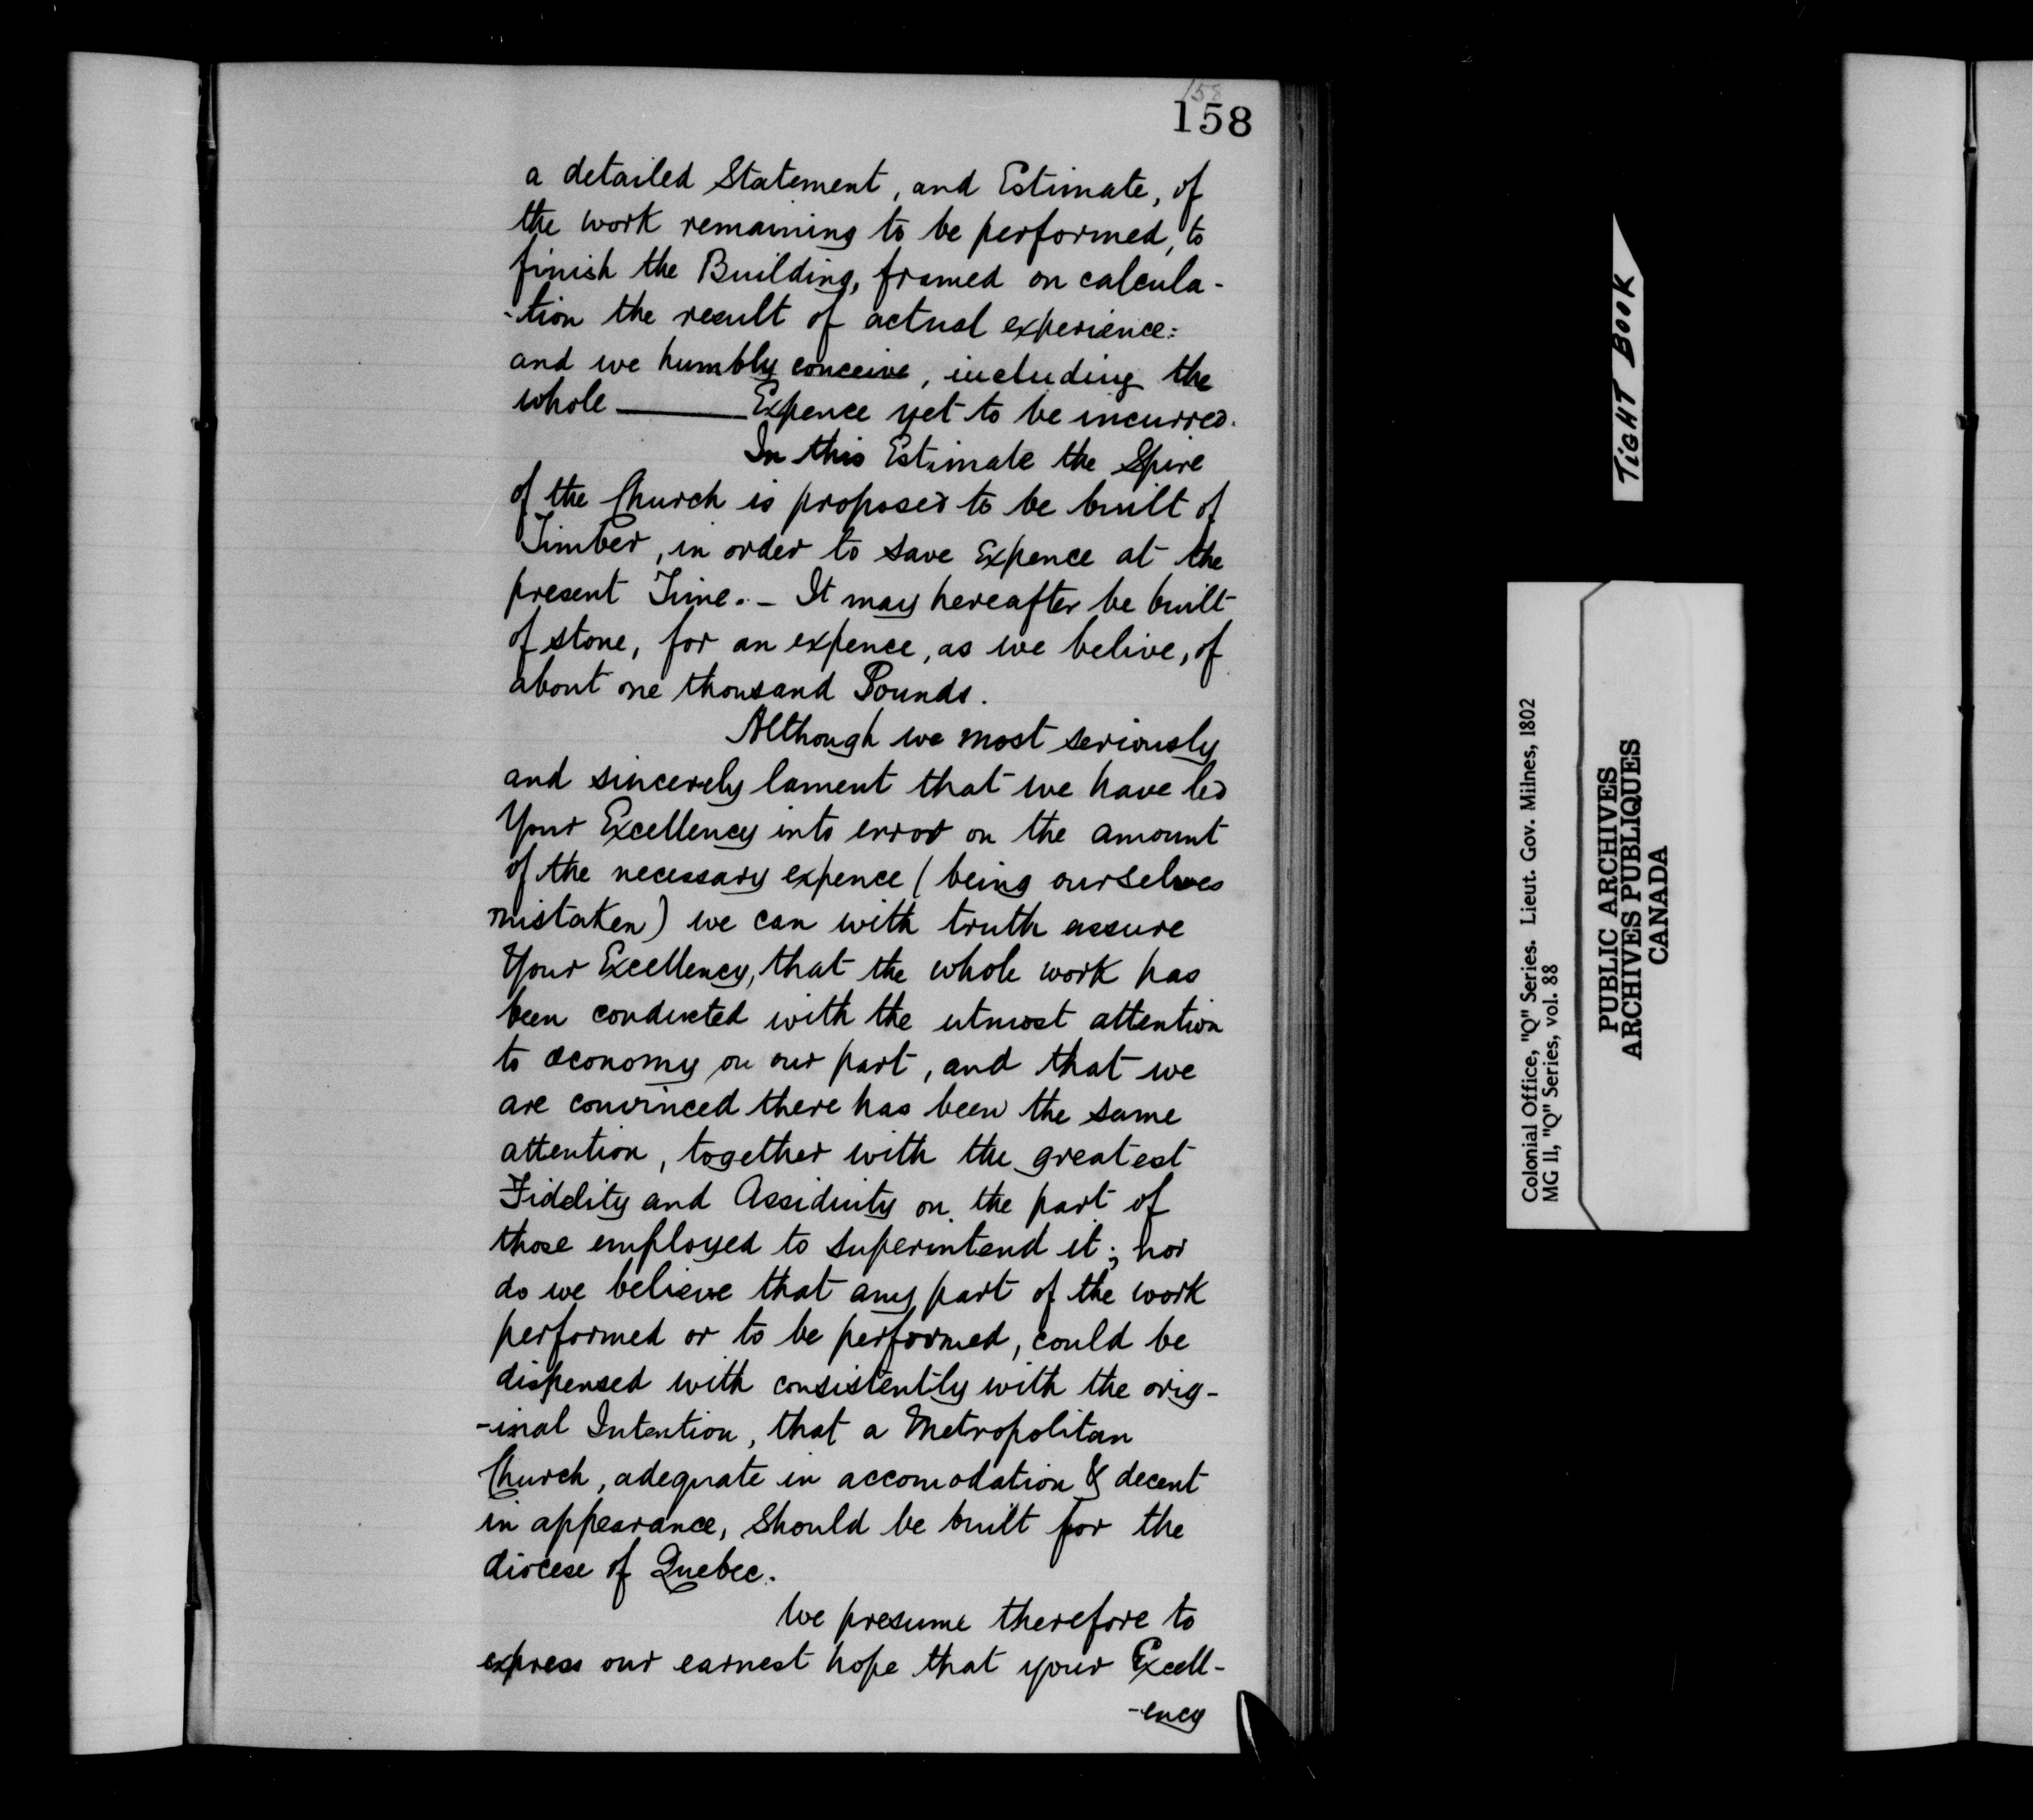 158
158
a detailed Statement, and Estimate, of
the work remaining to be performed, to
finish the Building, framed on calcula-
-tion the result of actual experience:
and we humbly conceive, including the
whole ——— Expence yet to be incurred.
In this Estimate the Spire
of the Church is proposed to be built of
Timber, in order to save Expence at the
present Time. - It may hereafter be built
of stone, for an expence, as we belive, of
about one thousand Pounds.
Although we most seriously
and sincerely lament that we have led
Your Excellency into error on the amount
of the necessary expence (being ourselves
mistaken) we can with truth assure
Your Excellency, that the whole work has
been conducted with the utmost attention
to œconomy on our part, and that we
are convinced there has been the same
attention, together with the greatest
Fidelity and Assiduity on the part of
those employed to superintend it; nor
do we believe that any part of the work
performed or to be performed, could be
dispensed with consistently with the orig-
-inal Intention, that a Metropolitan
Church, adequate in accomodation & decent
in appearance, should be built for the
diocese of Quebec.
We presume therefore to
express our earnest hope that your Excell-
-ency
TIGHT BOOK
Colonial Office, "Q" Series. Lieut. Gov. Milnes, 1802
MG II, "Q" Series, vol. 88
PUBLIC ARCHIVES
ARCHIVES PUBLIQUES
CANADA